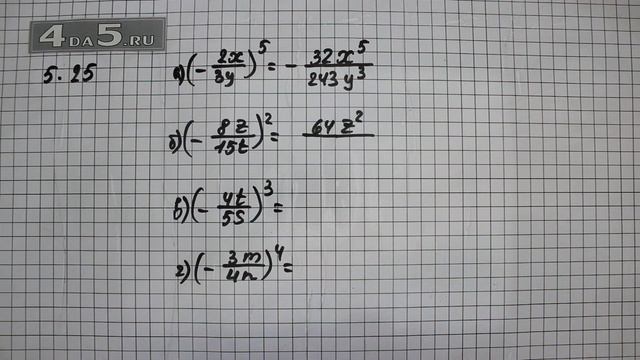 4DA5.RU
5.25
а) (- 2x/3y)^5 = - 32x^5/243y^3
б) (- 8z/15t)^2 = 64z^2/
в) (- 4t/5s)^3 =
г) (- 3m/4n)^4 =